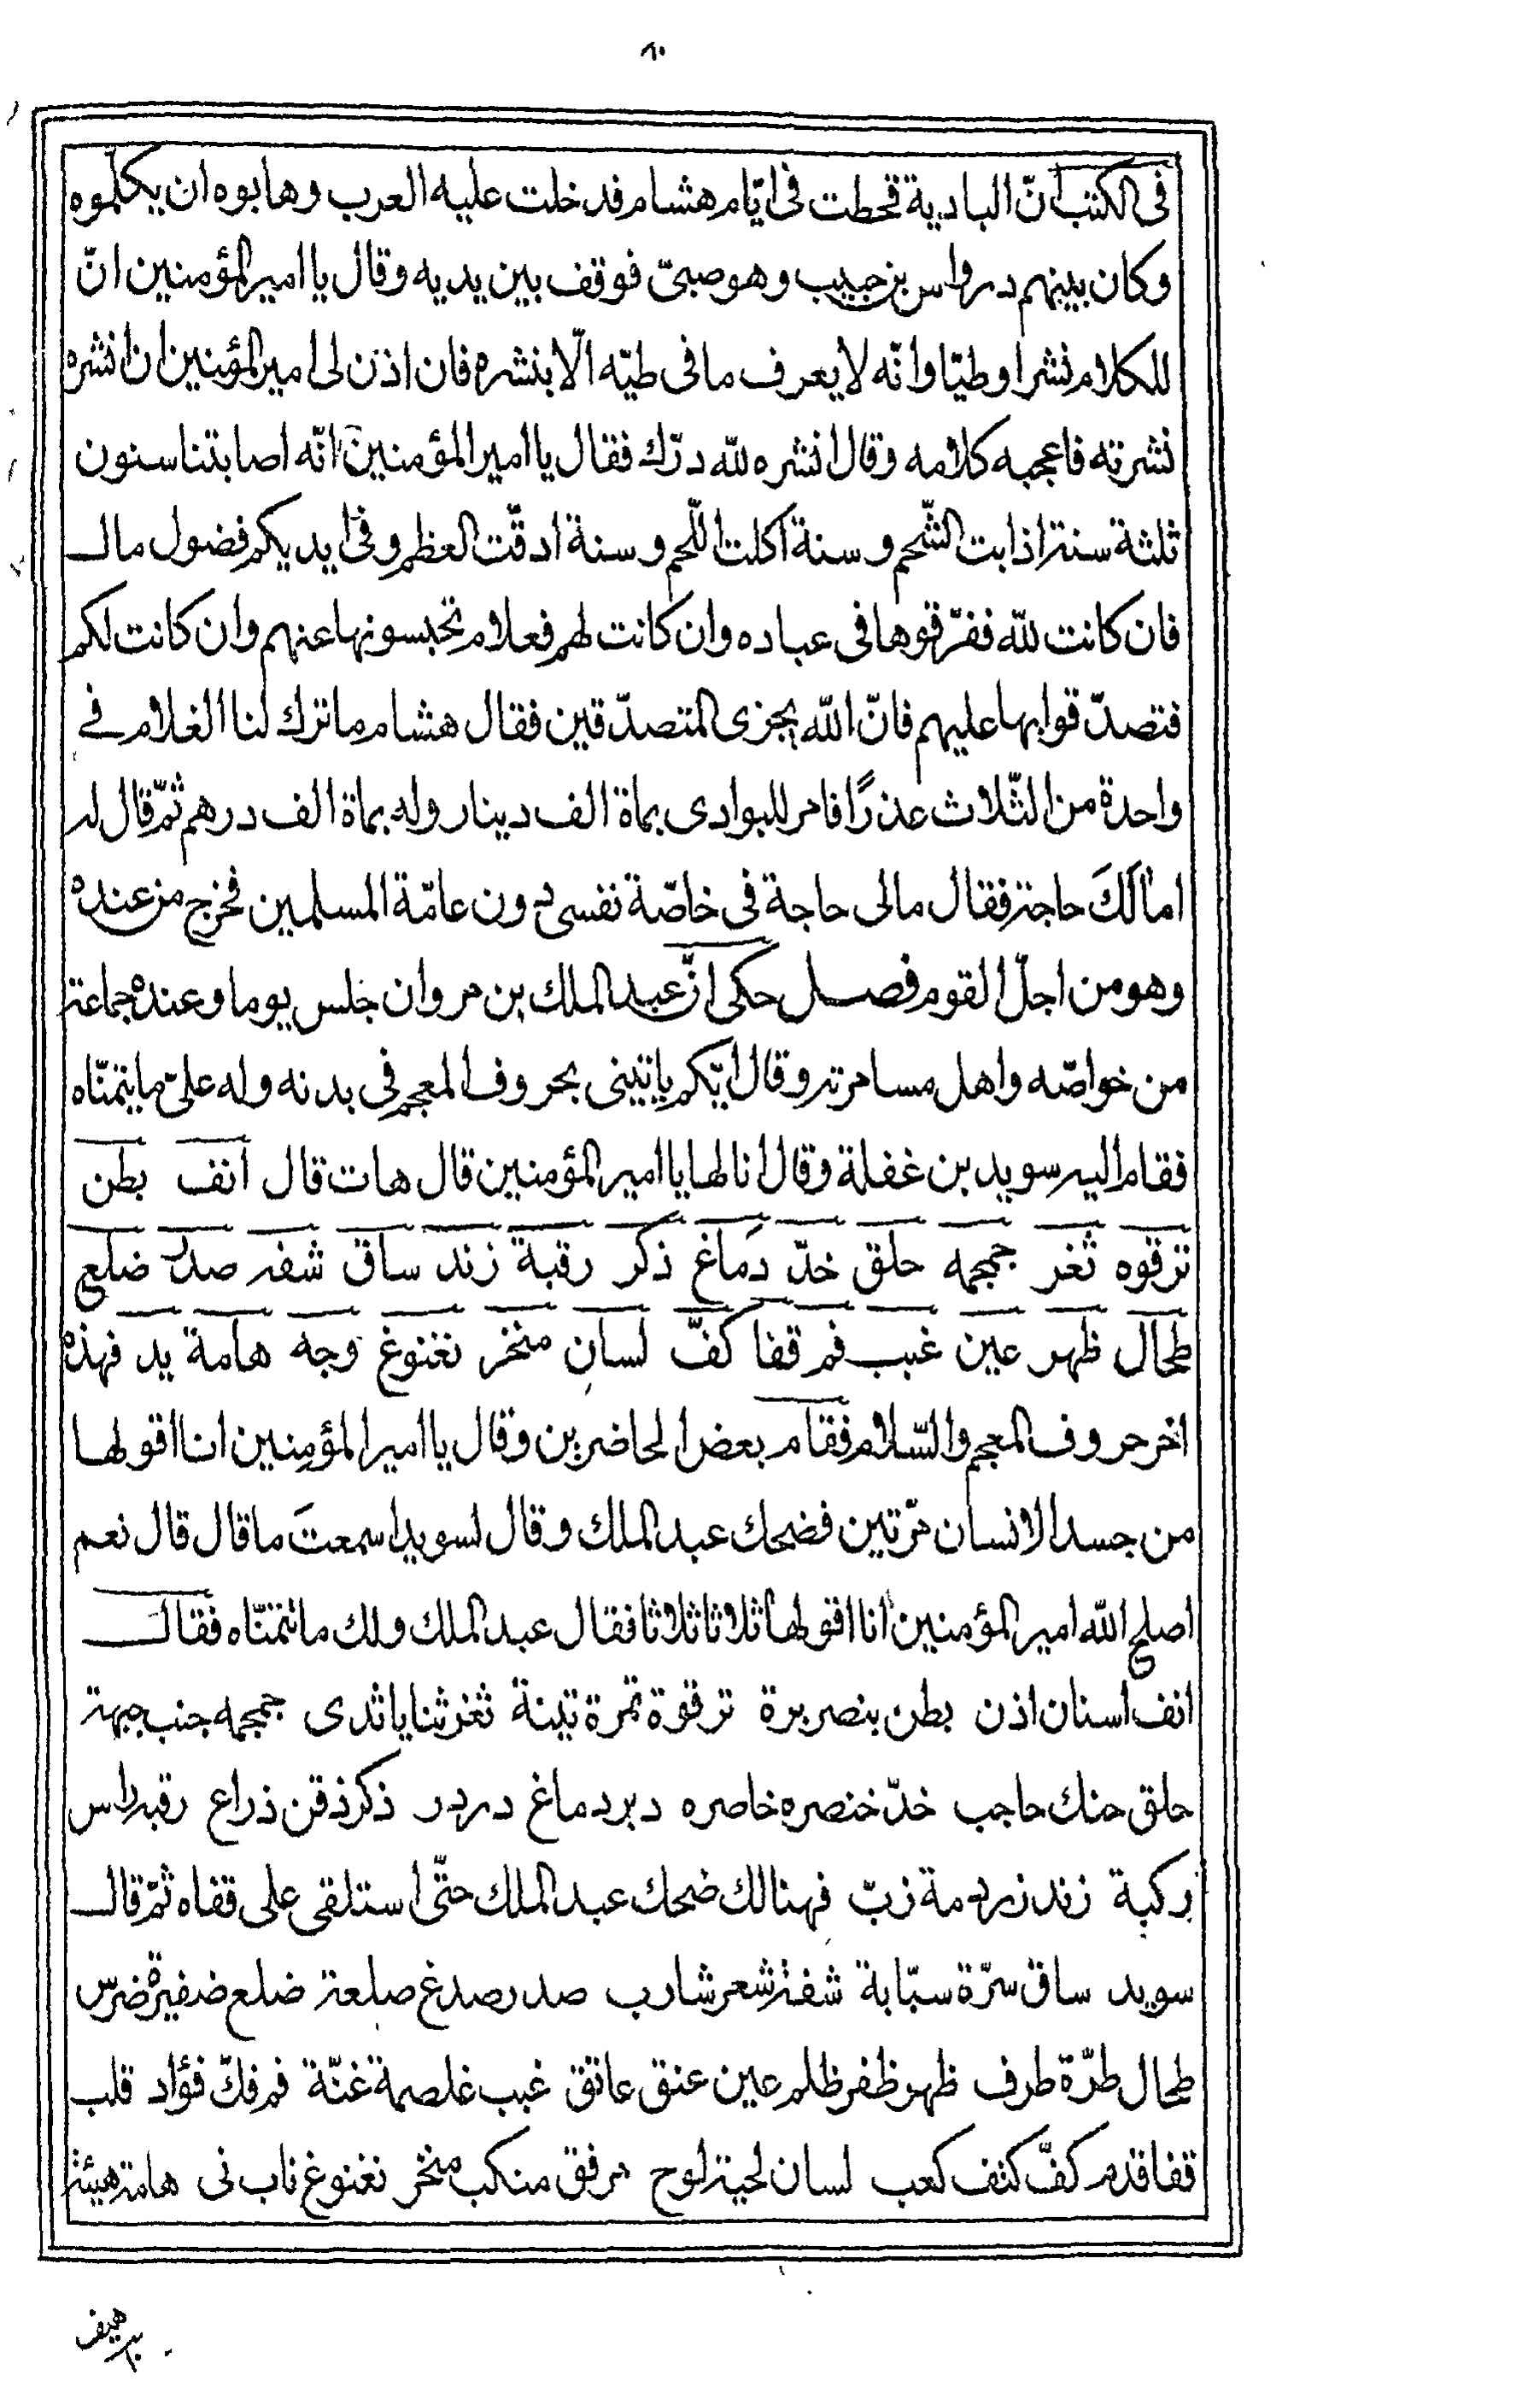 ٨٠
فى الكتب انّ البادية قحطت فى ايّام هشام فدخلت عليه العرب وهابوه ان يكلّموه
وكان بينهم درواس بن حبيب وهو صبىّ فوقف بين يديه وقال يا امير المؤمنين انّ
للكلام نشرا وطيّا وانّه لا يعرف ما فى طيّه الّا بنشره فان اذن لى امير المؤمنين ان انشره
نشرته فاعجبه كلامه وقال انشره لله درّك فقال يا امير المؤمنين انّه اصابتنا سنون
ثلثة سنة اذابت الشّحم وسنة اكلت اللّحم وسنة ادقّت العظم وفى ايديكم فضول مال
فان كانت لله ففرّقوها فى عباده وان كانت لهم فعلام تحبسونها عنهم وان كانت لكم
فتصدّقوا بها عليهم فانّ الله يجزى المتصدّقين فقال هشام ما ترك لنا الغلام فى
واحدة من الثّلاث عذرًا فامر للبوادى بماة الف دينار وله بماة الف درهم ثمّ قال له
امالَكَ حاجة فقال مالى حاجة فى خاصّة نفسى دون عامّة المسلمين فخرج من عنده
وهو من اجلّ القوم فصل حكى انّ عبد الملك بن مروان جلس يوما وعنده جماعة
من خواصّه واهل مسامرته وقال ايّكم ياتينى بحروف المعجم فى بدنه وله علىّ ما يتمنّاه
فقام اليه سويد بن غفلة وقال انا لها يا امير المؤمنين قال هات قال انف بطن
ترقوه ثغر جمجمه حلق خدّ دماغ ذكر رقبة زند ساق شفه صدر ضلع
طحال ظهر عين غبب فم قفا كفّ لسان منخر نغنوغ وجه هامة يد فهذه
اخر حروف المعجم والسّلام فقام بعض الحاضرين وقال يا امير المؤمنين انا اقولها
من جسد الانسان مرّتين فضحك عبد الملك وقال لسويد اسمعتَ ما قال قال نعم
اصلح الله امير المؤمنين انا اقولها ثلاثا ثلاثا فقال عبد الملك ولك ما تتمنّاه فقال
انف اسنان اذن بطن بنصر برة ترقوة تمرة تينة ثغر ثنايا ثدى جمجمه جنب جبهة
حلق حنك حاجب خدّ خنصره خاصره دبر دماغ دردر ذكر ذقن ذراع رقبه راس
ركبة زند زردمة زبّ فهنالك ضحك عبد الملك حتّى استلقى على قفاه ثمّ قال
سويد ساق سرّة سبّابة شفة شعر شارب صدر صدغ صلعة ضلع ضفيرة ضرس
طحال طرّة طرف ظهر ظفر ظلم عين عنق عاتق غبب غلصمة غنّة فم فكّ فؤاد قلب
قفا قدم كفّ كتف كعب لسان لحية لوح مرفق منكب منخر نغنوغ ناب نى هامة هيئة
هيف